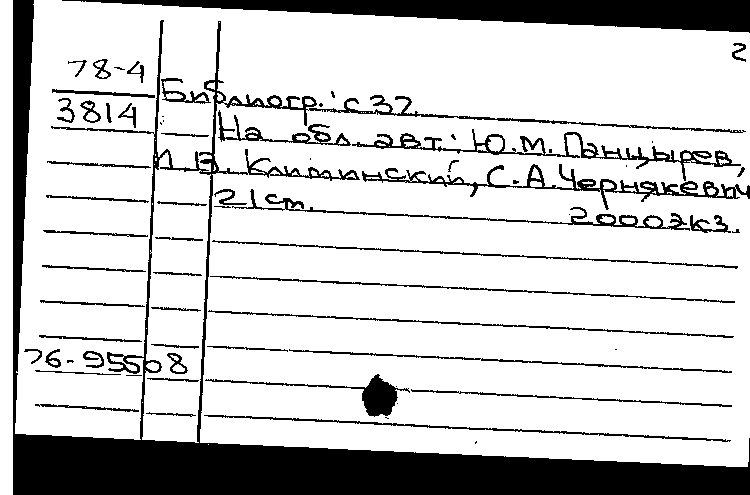 2
78-4
3814
Библиогр.: с 37.
На обл. авт.: Ю.М. Панцырев,
Л.В. Климинский, С.А. Чернякевич
21 cm. 2000экз.
76-95508